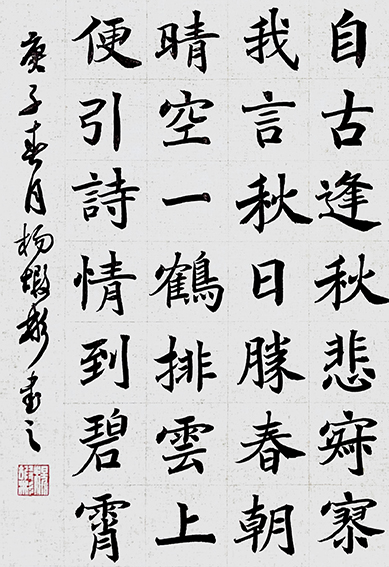 自古逢秋悲寂寥
我言秋日勝春朝
晴空一鶴排雲上
便引詩情到碧霄
庚子春月杨彬书之